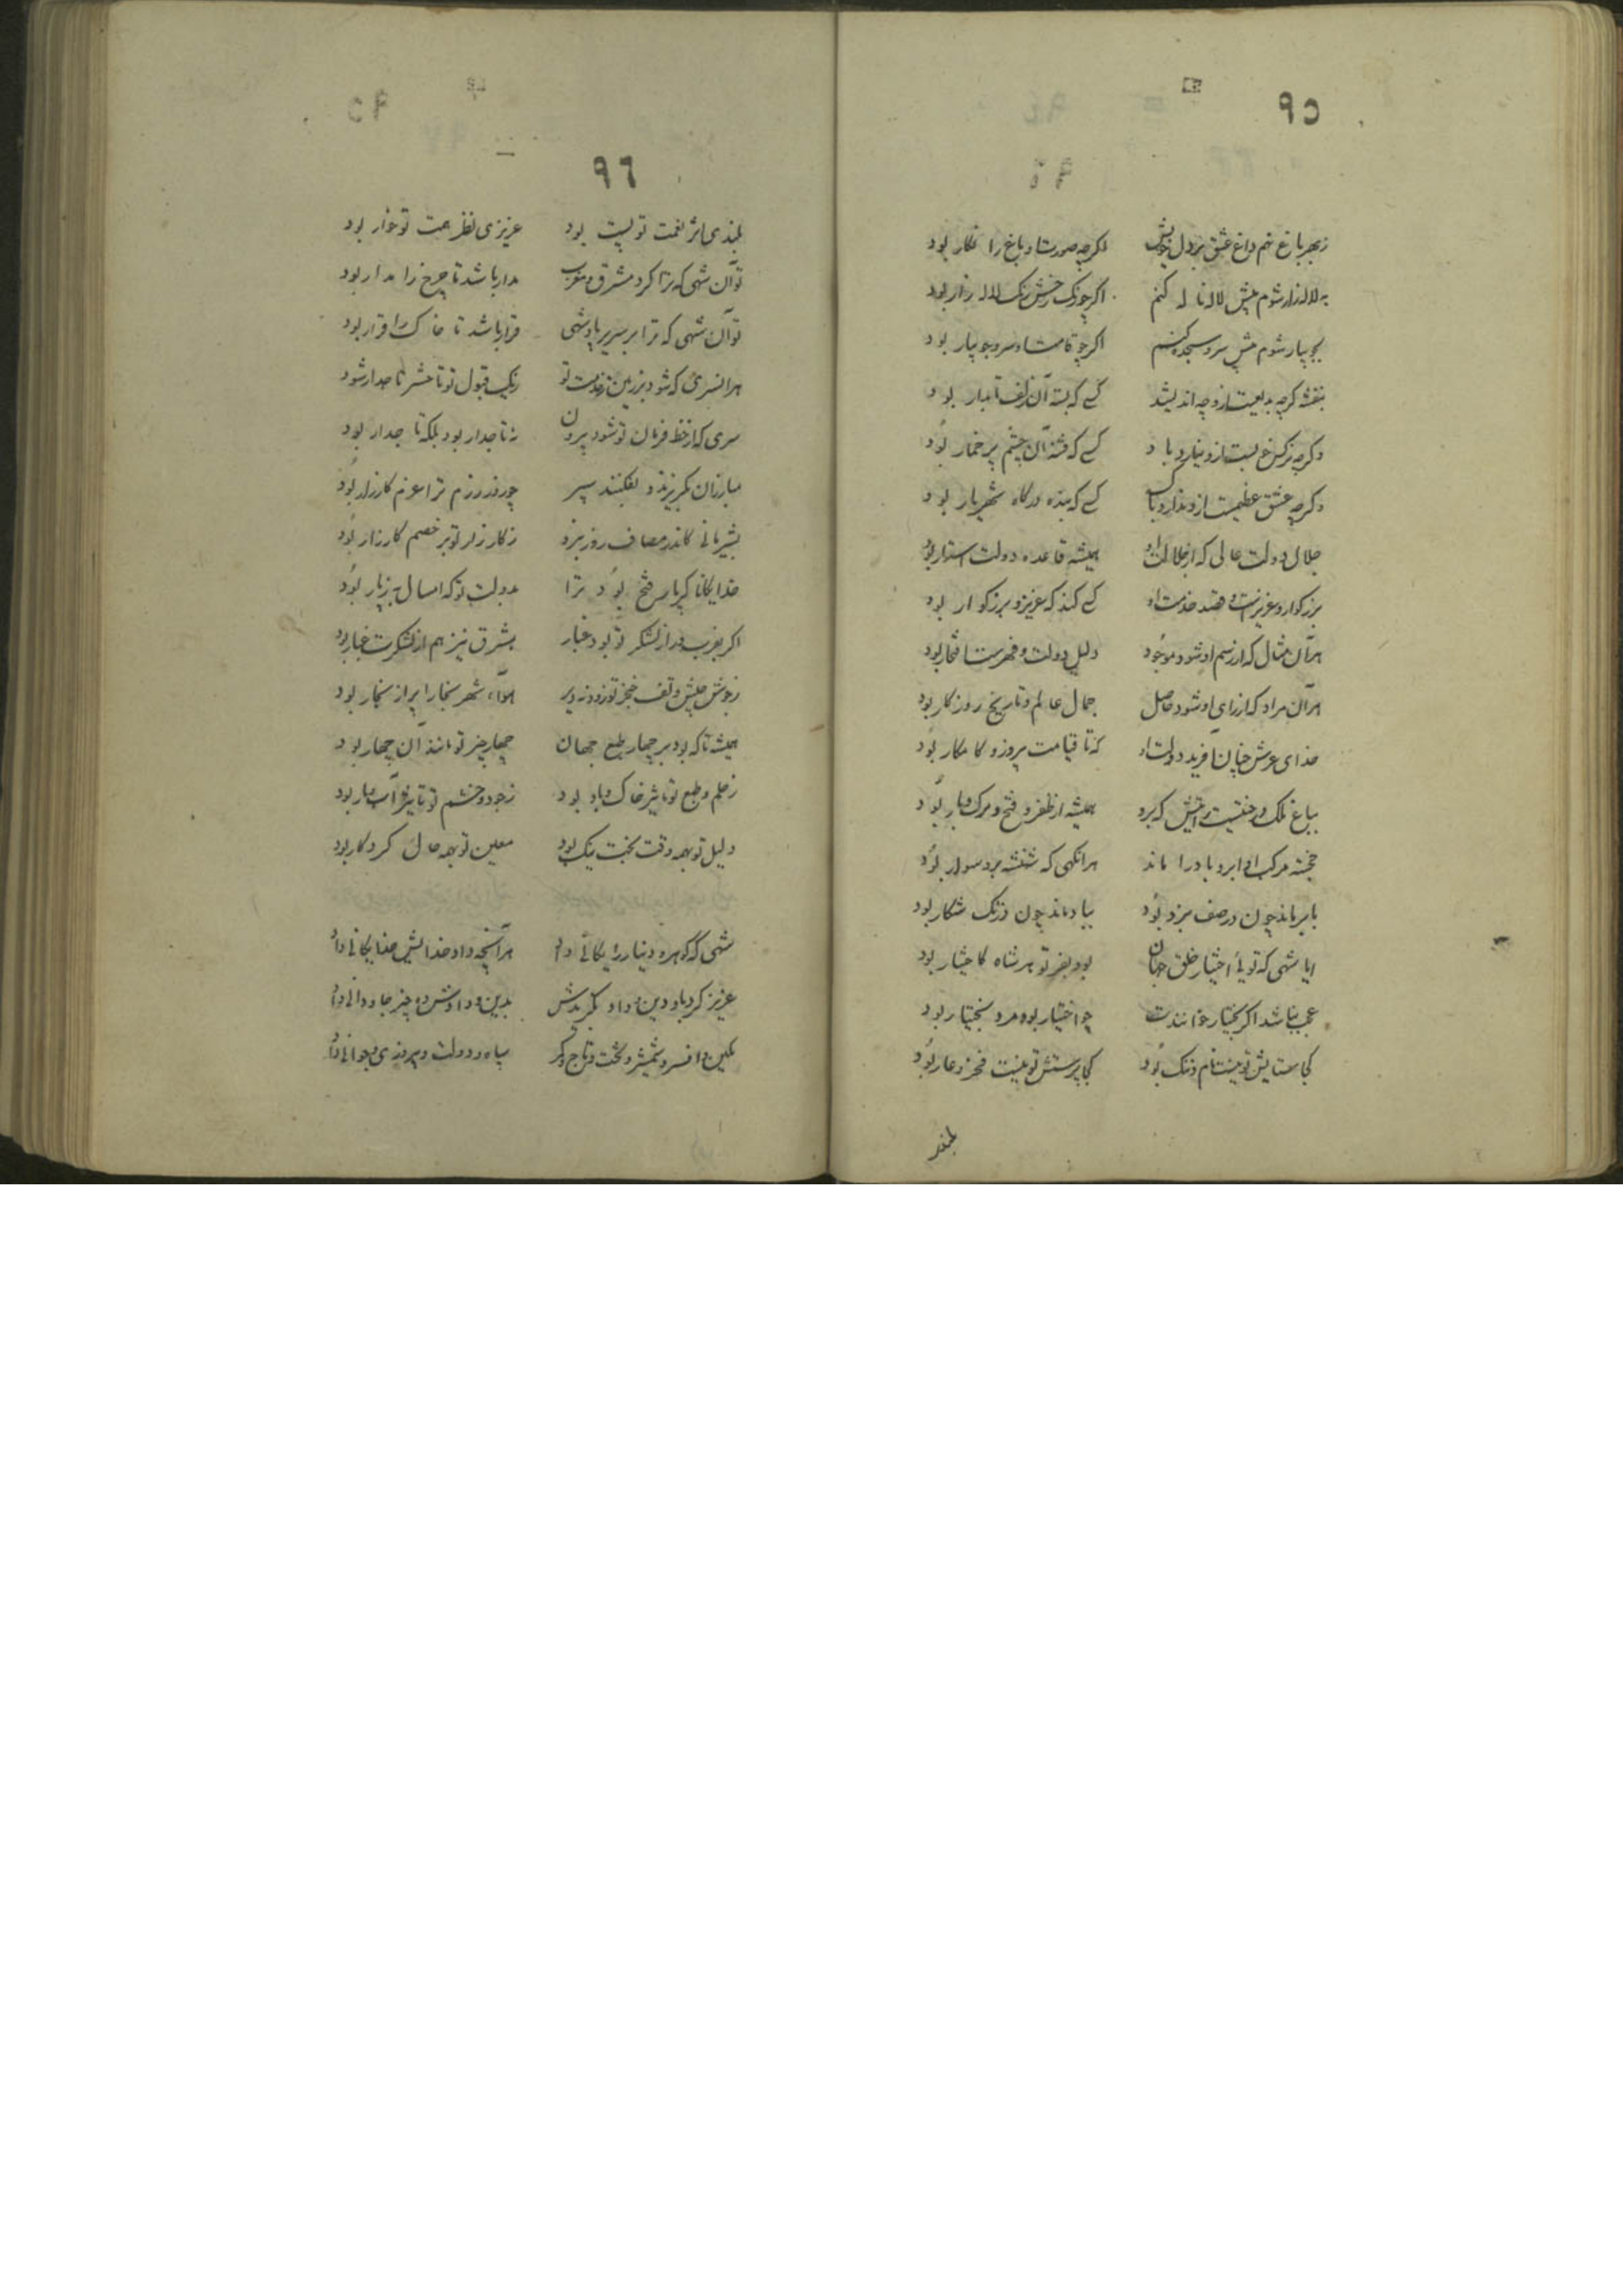 ٩٥
زبهر باغ نهم داغ عشق بر دل خویش اگرچه صورت او باغ را نگار بود
به لاله‌زار شوم پیش لاله ناله کنم اگرچو رنگ رخش رنگ لاله‌زار بود
بجویبار شوم پیش سرو سجده کنم اگرچو قامت او سرو جویبار بود
بنفشه گرچه بدیعست ازو چه اندیشد کسی که بسته آن زلف تابدار بود
وگرچه نرگس نیاید یاد کسی که فتنه آن چشم پر خمار بود
وگرچه عشق عظیمست ازو ندارد باک کسی که بنده درگاه شهریار بود
جلال دولت عالی که از جلالت او همیشه قاعده دولت استوار بود
بزرگوار و عزیزست و قصد خدمت او کسی کند که عزیز و بزرگوار بود
هر آن مثال که از رسم او شود موجود دلیل دولت و فهرست افتخار بود
هر آن مراد که از رای او شود حاصل جمال عالم و تاریخ روزگار بود
خدای عرش چنان آفرید دولت او که تا قیامت پیروز و کامکار بود
بباغ ملک درختیست رایتش که برو همیشه از ظفر و فتح و برگ و بار بود
خجسته مرکب او ابر و باد را ماند هر آنگهی که شهنشه برو سوار بود
بابر ماند چون در صف نبرد بود بباد ماند چون در تک شکار بود
ایا شهی که تویی اختیار خلق جهان بود بفر تو هر شاه کاختیار بود
عجب نباشد اگر بختیار خوانندت چو اختیار بود مرد بختیار بود
کجا ستایش تو نیست نام و ننگ بود کجا پرستش تو نیست فخر و عار بود
بلند
٩٦
بلندی بر نعمت تو پست بود عزیزی نظر همت تو خوار بود
تو آن شهی که ترا کرد مشرق و مغرب مدار باشد تا چرخ را مدار بود
تو آن شهی که ترا بر سریر پادشهی قرار باشد تا خاک را قرار بود
هر افسری که شود بر زمین خدمت تو ز یک قبول تو تا حشر تاجدار شود
سری که از خط فرمان تو شود بیرون نه تاجدار بود بلکه تا جدار بود
مبارزان بگریزند و بفکنند سپر چو روز رزم ترا عزم کارزار بود
بشیر مانی کاندر مصاف روز نبرد ز کارزار تو بر خصم کار زار بود
خدایگانا گر پار فتح بود ترا بدولت تو که امسال به ز پار بود
اگر بغرب در از لشکر تو بود غبار بشرق نیز هم از لشکرت غبار بود
ز جوش جیش و تف خنجر تو زود نه دیر هوای شهر بخارا پر از بخار بود
همیشه تا که بود بر چهار طبع جهان چهار چیز تو مانند آن چهار بود
ز حلم و طبع تو تاثیر خاک و باد بود ز جود و خشم تو تاثیر آب و نار بود
دلیل تو بهمه وقت بخت نیک بود معین تو بهمه حال کردگار بود
شهی که گوهر و دینار رایگانی داد هر آنچه داد خدایش خدایگانی داد
عزیز کرد باو دین و داد بدین و دادش ده چیز جاودانی داد
نگین و افسر و شمشیر و تخت و تاج و کمر سپاه و دولت و پیروزی و جوانی داد